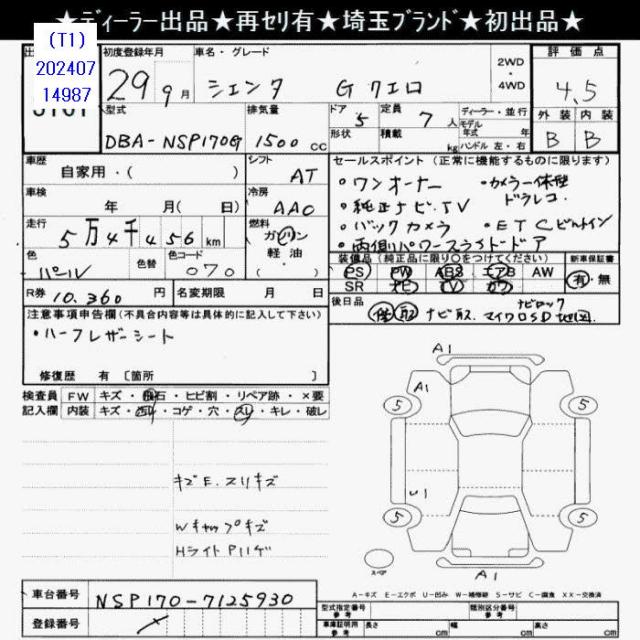 ★ディーラー出品★再セリ有★埼玉ブランド★初出品★
(T1)
202407
14987
初度登録年月 車名・グレード 2WD・4WD 評価点
29 9月 シエンタ G クエロ 4.5
5101
型式 排気量 ドア 5 定員 7人 ディーラー・並行 外装 内装
DBA-NSP170G 1500cc 形状 積載 kg モデル年式 年 ハンドル 左・右 B B
車歴 シフト セールスポイント(正常に機能するものに限ります)
自家用・( ) AT
・ワンオーナー ・カメラ一体型ドラレコ
車検 冷房
年 月( 日) AAC
・純正ナビ.TV
走行 燃料 ・バックカメラ ・ETCビルトイン
5万4千456km ガソリン 軽油・
・両側パワースライドドア
色 色替 色コード 装備品(純正品に限り〇をつけてください) 新車保証書
パール 070 PS PW ABS エアB AW 有・無
SR ナビ TV カワ
R券 10.360円 名変期限 月 日 後日品
保 取 ナビ取. ナビロック マイクロSD地図
注意事項申告欄(不具合内容等は具体的に記入して下さい)
・ハーフレザーシート
修復歴 有〔箇所 〕
検査員記入欄 FW キズ・飛石・ヒビ割・リペア跡・×要
内装 キズ・汚れ・コゲ・穴・スリ・キレ・破レ
A1
A1
5 5
キズE.スリキズ
U1
Wキャップキズ
5 5
HライトPハゲ
スペア
A1
A-キズ E-エクボ U-凹み W-補修跡 S-サビ C-腐食 XX-交換済
車台番号 NSP170-7125930
型式指定番号 参考 類別区分番号 参考
登録番号
車庫証明用 参考 長さ cm 幅 cm 高さ cm